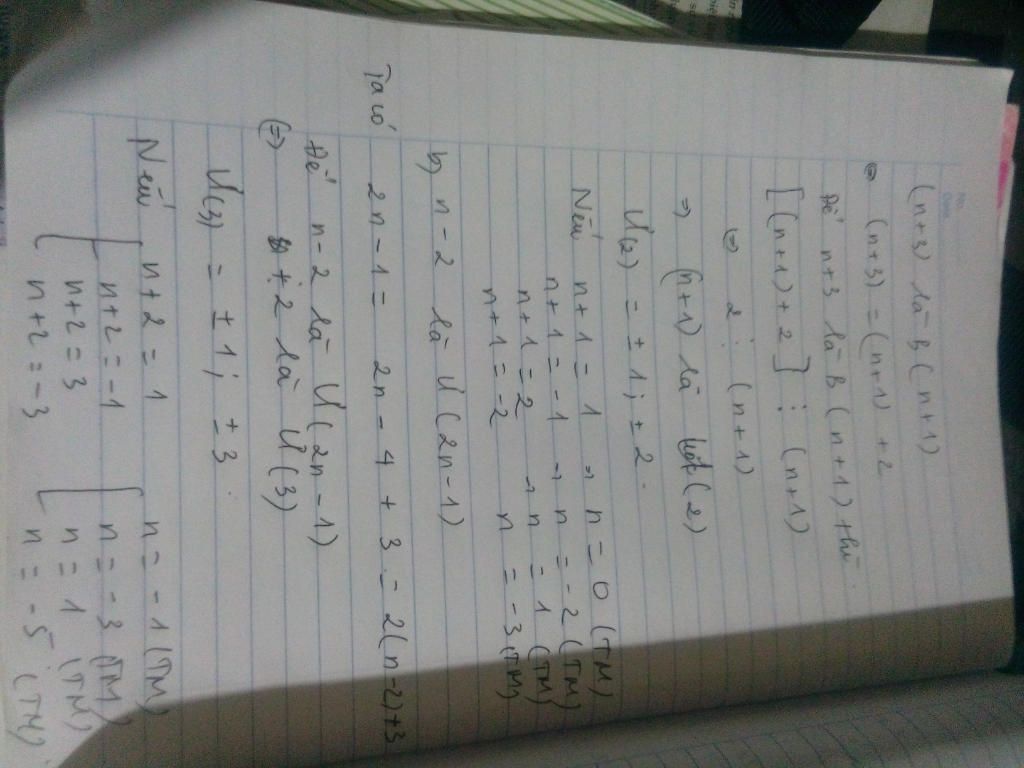 (n+3) là B(n+1)
(n+3) = (n+1) + 2
Để n+3 là B(n+1) thì
[(n+1)+2] ⋮ (n+1)
⇔ 2 ⋮ (n+1)
⇒ (n+1) là (2)
Ư(2) = ±1; ±2.
Nếu n+1 = 1 → n = 0 (TM)
n+1 = -1 → n = -2 (TM)
n+1 = 2 → n = 1 (TM)
n+1 = -2 n = -3 (TM)
b) n-2 là Ư(2n-1)
Ta có 2n-1 = 2n-4+3 = 2(n-2)+3
Để n-2 là Ư(2n-1)
(=) n+2 là Ư(3)
Ư(3) = ±1; ±3.
Nếu n+2 = 1 n = -1 (TM)
n+2 = -1 n = -3 (TM)
n+2 = 3 n = 1 (TM)
n+2 = -3 n = -5 (TM)